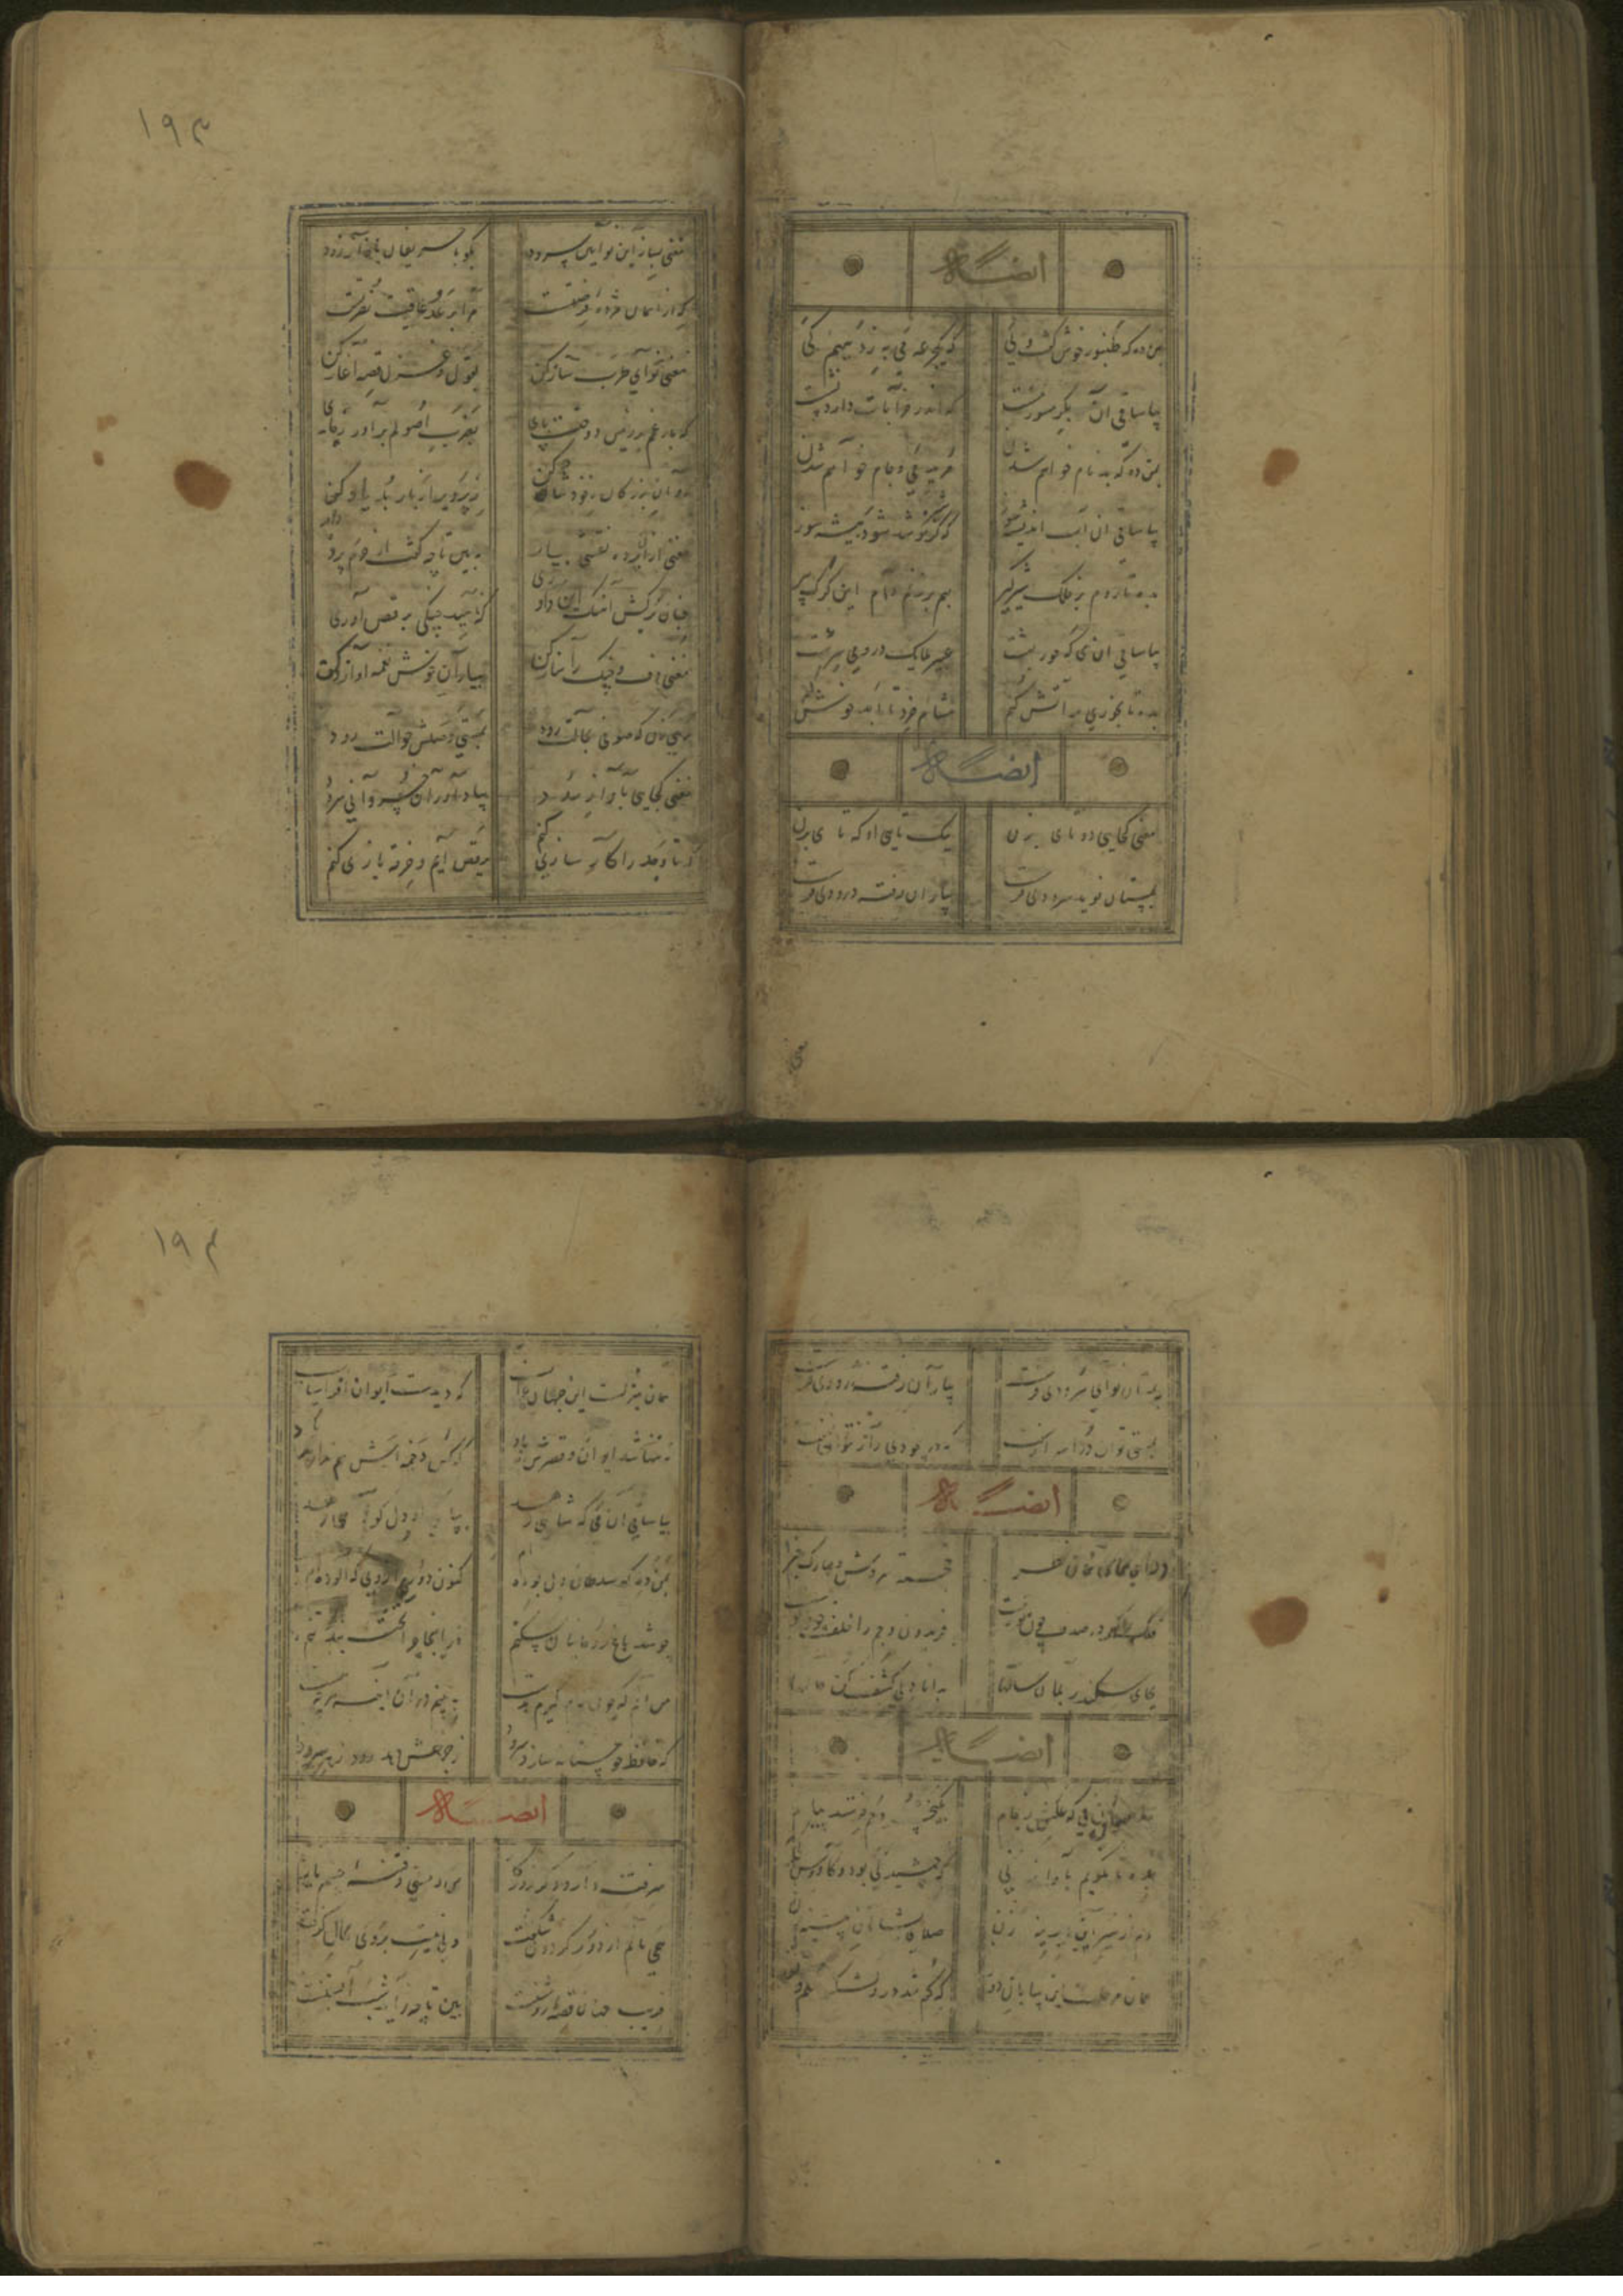 ۱۹۳
ایضاً له
بمن ده که طنبور خوش گفت و نی
که جرعه می به ز دیهیم کی
بیا ساقی آن بکر مستور مست
که اندر خرابات دارد نشست
بمن ده که بدنام خواهم شدن
مرید می و جام خواهم شدن
بیا ساقی آن آب اندیشه سوز
که گر شیر نوشد شود بیشه سوز
بده تا روم بر فلک شیرگیر
بهم بر زنم دام این گرگ پیر
بیا ساقی آن می که حور بهشت
عبیر ملایک در وی سرشت
بده تا بخوری در آتش کنم
مشام خرد تا ابد خوش کنم
ایضاً له
مغنی کجایی دوتایی بزن
یکتایی او که تایی بزن
بمستان نوید سرودی فرست
بیاران رفته درودی فرست
مغنی بساز این نوآیین سرود
بگو با حریفان بآواز رود
که از آسمان مژده نصرت است
مرا بر عدو عاقبت فرصت است
مغنی نوای طرب ساز کن
بقول و غزل قصه آغاز کن
که بار غم بر زمین دوخت پای
بضرب اصولم برآور ز جای
روان بزرگان ز خود شاد کن
ز پرویز و از باربد یاد کن
مغنی از آن پرده نقشی بیار
ببین تا چه گفت از حرم پرده دار
چنان برکش آهنگ این داوری
که ناهید چنگی برقص آوری
مغنی دف و چنگ را ساز کن
بیاران خوش نغمه آواز کن
رهی زن که صوفی بحالت رود
بمستی وصلش حوالت رود
مغنی کجایی بآواز رود
بیاد آور آن خسروانی سرود
که تا وجد را کارسازی کنم
برقص آیم و خرقه بازی کنم
۱۹۴
بمستان نوای سرودی فرست
بیاران رفته درودی فرست
بمستی توان در اسرار سفت
که در بیخودی راز نتوان نهفت
ایضاً له
خجسته سروش و مبارک خبر
فلک را گهر در صدف چون تو نیست
فریدون و جم را خلف چون تو نیست
بجای سکندر بمان سالها
به دانادلی کشف کن حالها
ایضاً له
بیا ساقی آن می که عکسش ز جام
بکیخسرو و جم فرستد پیام
بده تا بگویم بآواز نی
که جمشید کی بود و کاووس کی
دم از سیر این دیر دیرینه زن
صلایی بشاهان پیشینه زن
همان مرحله است این بیابان دور
که گم شد درو لشکر سلم و تور
همان منزلست این جهان خراب
که دیدست ایوان افراسیاب
نه تنها شد ایوان و قصرش بباد
که کس دخمه‌اش هم ندارد بیاد
بیا ساقی آن می که شاهی دهد
بپاکی او دل گواهی دهد
بمن ده که سلطان دل بوده‌ام
کنون دورم از وی که آلوده‌ام
چو شد باغ روحانیان مسکنم
در اینجا چرا تخته بند تنم
من آنم که چون جام گیرم بدست
ببینم در آن آینه هر چه هست
که حافظ چو مستانه سازد سرود
ز چرخش دهد رود زهره درود
ایضاً له
سر فتنه دارد دگر روزگار
من و مستی و فتنه چشم یار
همی مانم از دور گردون شگفت
فریب جهان قصه روشنست
ببین تا چه زاید شب آبستنست